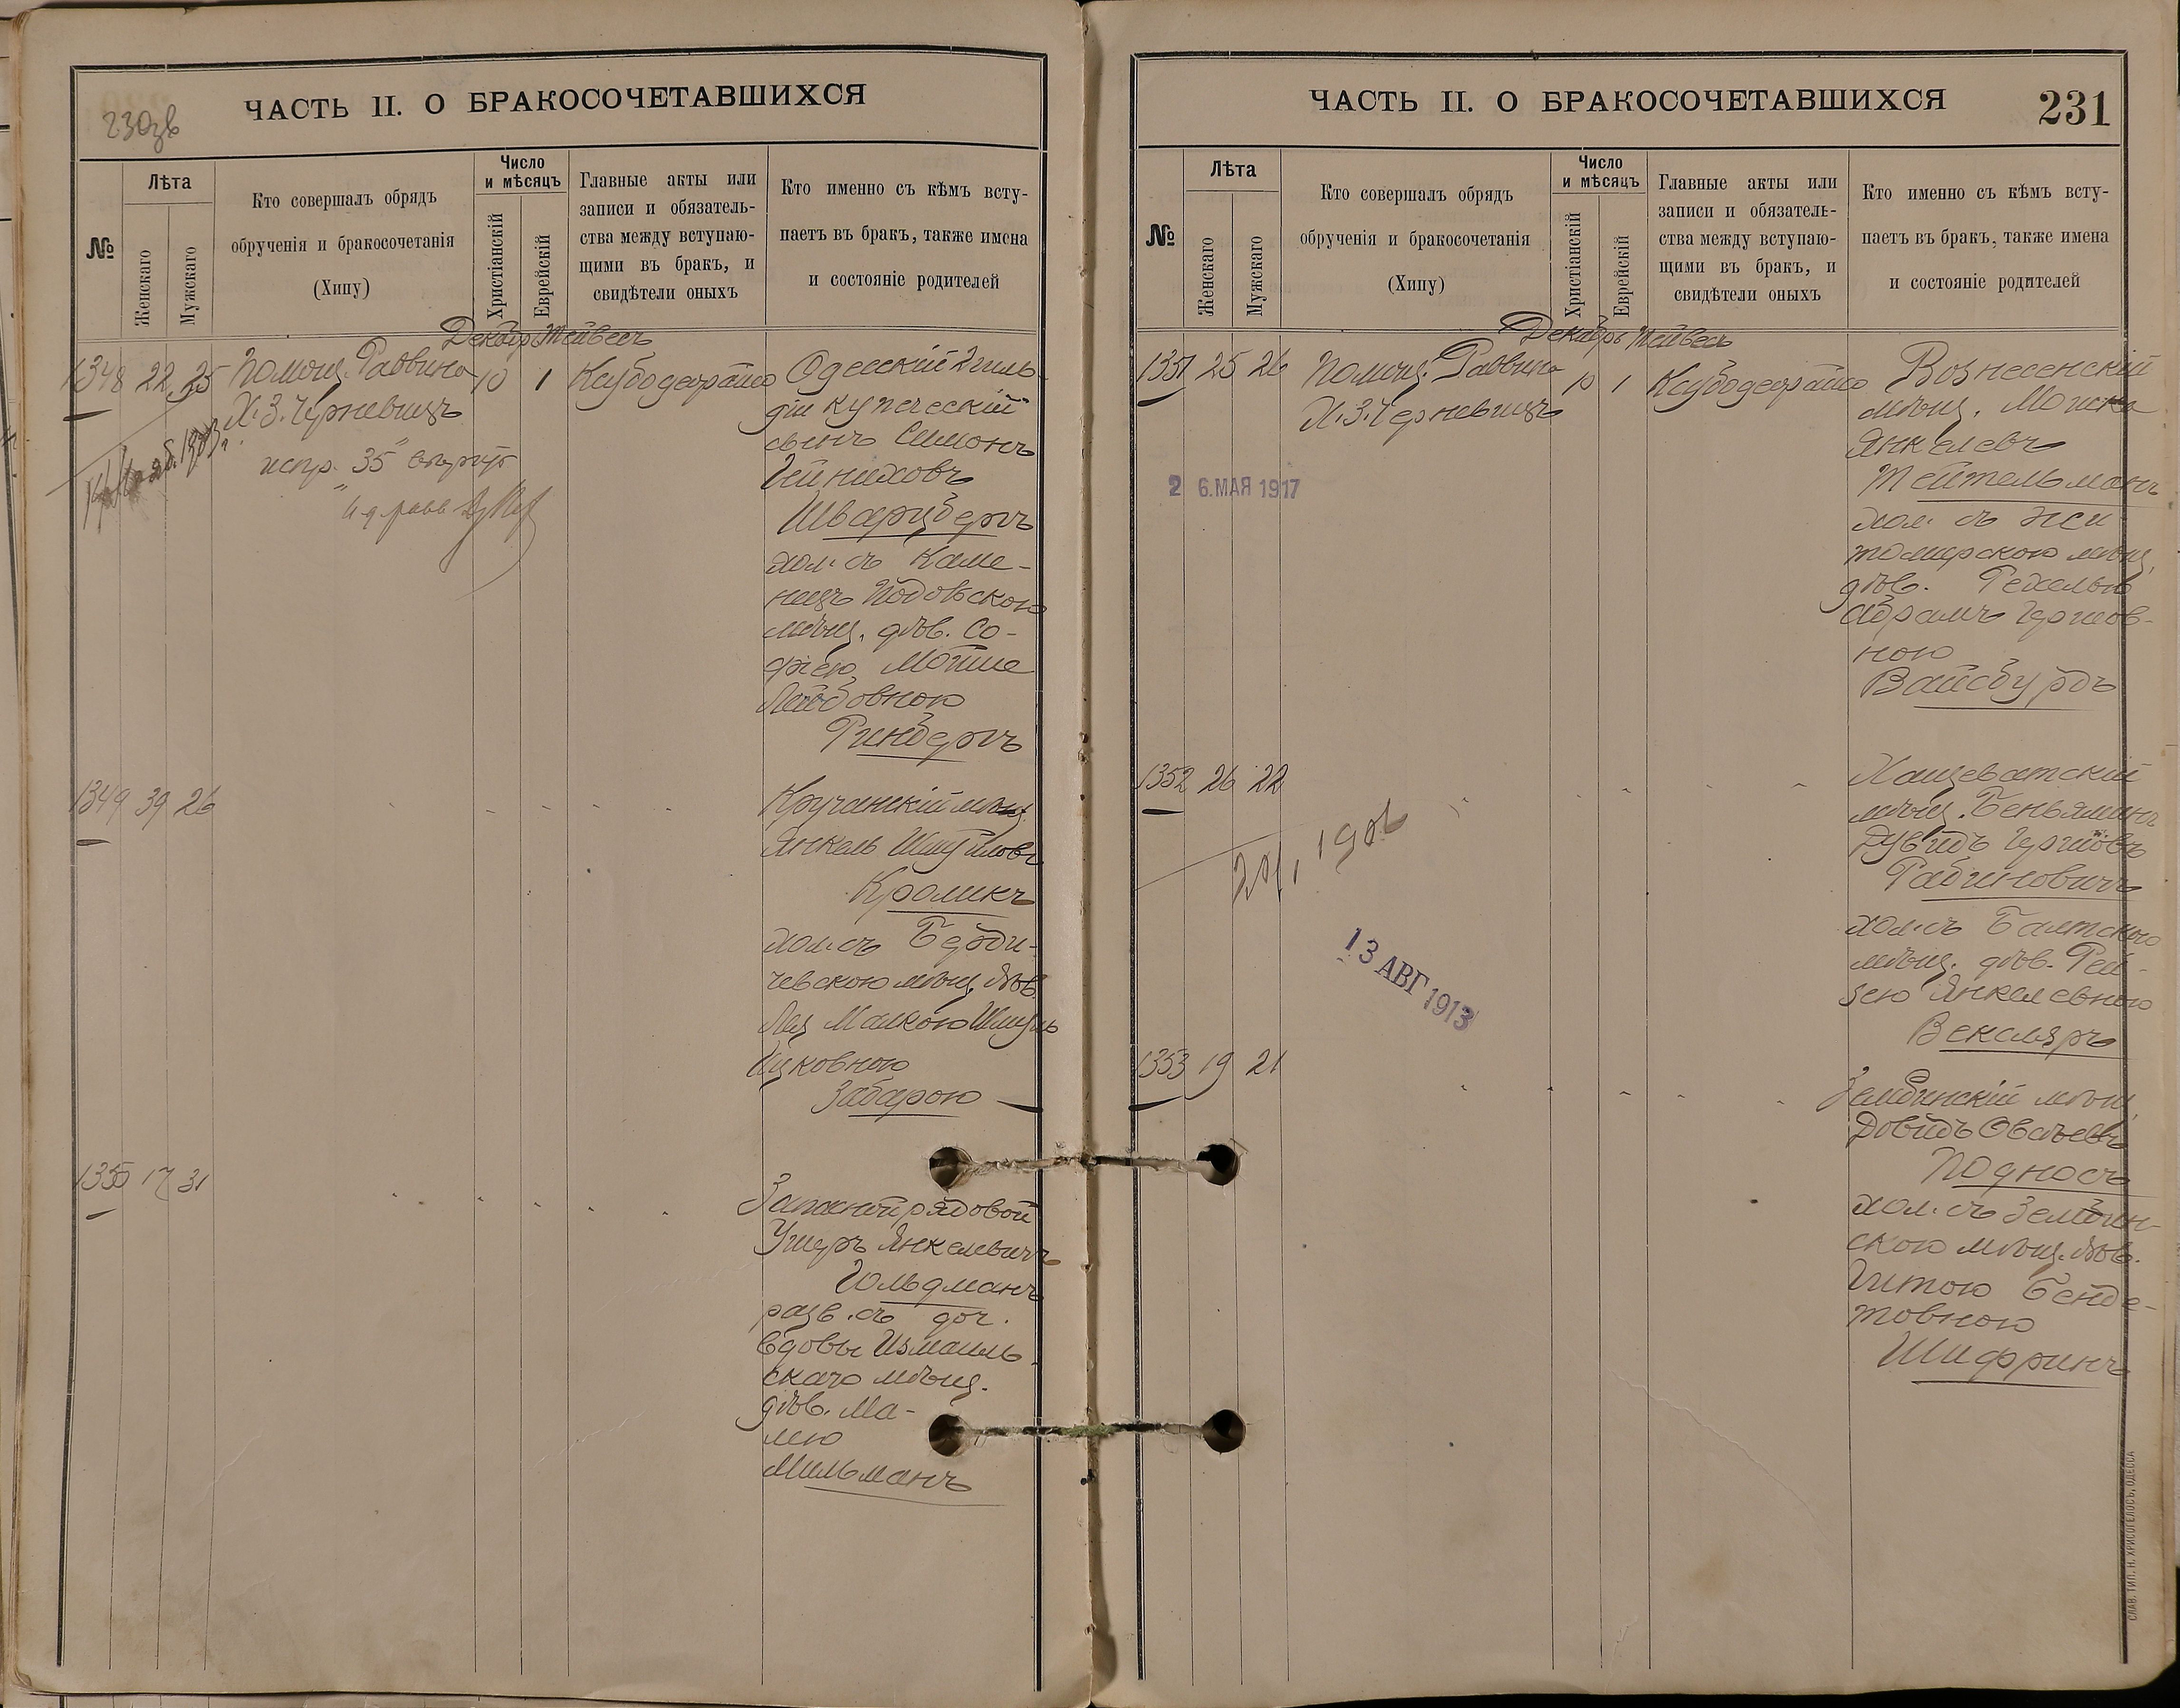 230зв
ЧАСТЬ II. О БРАКОСОЧЕТАВШИХСЯ
№
Лѣта
Женскаго
Мужскаго
Кто совершалъ обрядъ
обрученія и бракосочетанія
(Хипу)
Число
и мѣсяцъ
Христіанскій
Еврейскій
Главные акты или
записи и обязатель-
ства между вступаю-
щими въ бракъ, и
свидѣтели оныхъ
Кто именно съ кѣмъ всту-
паетъ въ бракъ, также имена
и состояніе родителей
Декабр Тейвесъ
1348 22 25
Помощ. Раввина
Х. З. Черневицъ
10 1
испр. "35"
Одесскій 2 гиль-
діи купеческій
сынъ Симонъ
Гейниховъ
Шварцбергъ
хол. съ Каме-
нецъ Подольскою
мѣщ. дѣв. Со-
фіею Мойше
Лейбовною
Ринбергъ
1349 39 26
Кручанскій мѣщ.
Янкель Шмуйловъ
Кроликъ
хол. съ Берди-
чевскою мѣщ. дѣв.
Лея Малкою Шмуль
Ицковною
Забарою
1350 17 31
Запасной рядовой
Ушеръ Янкелевичъ
Гольдманъ
разв. съ доч.
вдовы Измаиль-
скаго мѣщ.
дѣв. Ма-
нею
Мильманъ
ЧАСТЬ II. О БРАКОСОЧЕТАВШИХСЯ
231
№
Лѣта
Женскаго
Мужскаго
Кто совершалъ обрядъ
обрученія и бракосочетанія
(Хипу)
Число
и мѣсяцъ
Христіанскій
Еврейскій
Главные акты или
записи и обязатель-
ства между вступаю-
щими въ бракъ, и
свидѣтели оныхъ
Кто именно съ кѣмъ всту-
паетъ въ бракъ, также имена
и состояніе родителей
Декабрь Тейвесъ
1351 25 26
Помощ. Раввина
Х. З. Черневицъ
10 1
2 6. МАЯ 1917
Вознесенскій
мѣщ. Моиска
Янкелевъ
Тейтельманъ
хол. съ Жи
томирскою мѣщ.
дѣв. Рехелью
Абрамъ Гершов-
ною
Вайсбурдъ
1352 26 22
13 АВГ 1913
Хащеватскій
мѣщ. Беньяминъ
Дувидъ Гершовъ
Рабиновичъ
хол. съ Балтскою
мѣщ. дѣв. Рей-
зею Янкелевною
Векслеръ
1353 19 21
Зембинскій мѣщ.
Довидъ Овсѣевъ
Подносъ
хол. съ Зембин-
скою мѣщ. дѣв.
Гитою Бенде-
товною
Шифринъ
СЛАВ. ТИП. Н. ХРИСОГЕЛОСЪ, ОДЕССА